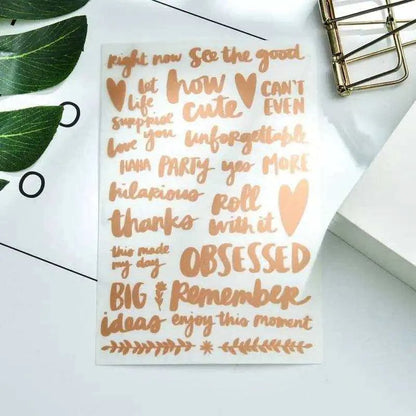 Right now see the good
let life surprise you
how cute
CAN'T EVEN
love
unforgettable
HAHA PARTY yes MORE
hilarious
Roll with it
thanks
this made my day
OBSESSED
BIG Remember
ideas enjoy this moment